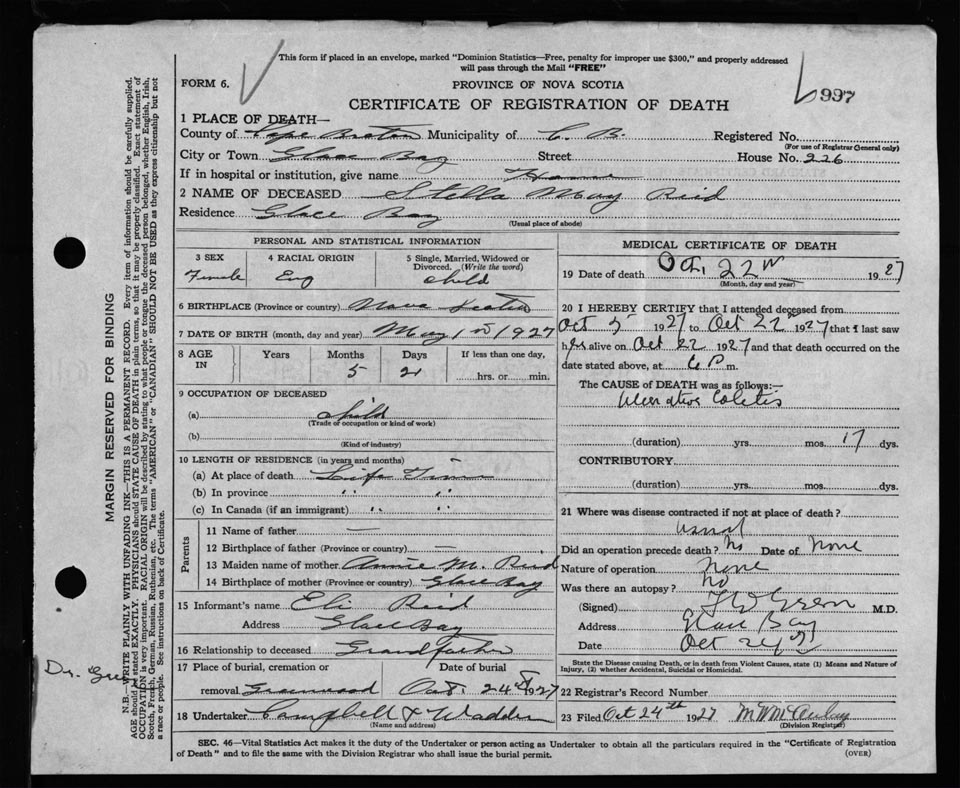 This form if placed in an envelope, marked "Dominion Statistics—Free, penalty for improper use $300," and properly addressed
will pass through the Mail "FREE"
FORM 6.
PROVINCE OF NOVA SCOTIA
997
CERTIFICATE OF REGISTRATION OF DEATH
1 PLACE OF DEATH—
County of Cape Breton Municipality of C. B. Registered No.
(For use of Registrar General only)
City or Town Glace Bay Street House No. 226
If in hospital or institution, give name Home
2 NAME OF DECEASED Stella May Reid
Residence Glace Bay
(Usual place of abode)
PERSONAL AND STATISTICAL INFORMATION
3 SEX 4 RACIAL ORIGIN 5 Single, Married, Widowed or
Divorced. (Write the word)
Female Eng child
6 BIRTHPLACE (Province or country) Nova Scotia
7 DATE OF BIRTH (month, day and year) May 1st 1927
8 AGE IN Years Months Days If less than one day,
5 21 hrs. or min.
9 OCCUPATION OF DECEASED
(a) child
(Trade or occupation or kind of work)
(b)
(Kind of industry)
10 LENGTH OF RESIDENCE (in years and months)
(a) At place of death Life Time
(b) In province " "
(c) In Canada (if an immigrant) " "
Parents
11 Name of father —
12 Birthplace of father (Province or country) —
13 Maiden name of mother Annie M. Reid
14 Birthplace of mother (Province or country) Glace Bay
15 Informant's name Eli Reid
Address Glace Bay
16 Relationship to deceased Grandfather
17 Place of burial, cremation or Date of burial
removal Greenwood Oct. 24th 1927
18 Undertaker Campbell & Wadden
(Name and address)
MEDICAL CERTIFICATE OF DEATH
19 Date of death Oct. 22nd 1927
(Month, day and year)
20 I HEREBY CERTIFY that I attended deceased from
Oct 5 1927 to Oct 22 1927 that I last saw
her alive on Oct 22 1927 and that death occurred on the
date stated above, at 6 P m.
The CAUSE OF DEATH was as follows:—
Ulcerative Colitis
(duration) yrs. mos. 17 dys.
CONTRIBUTORY
(duration) yrs. mos. dys.
21 Where was disease contracted if not at place of death?
usual
Did an operation precede death? No Date of None
Nature of operation None
Was there an autopsy? No
(Signed) M.D.
Address Glace Bay
Date Oct 24/27
State the Disease causing Death, or in death from Violent Causes, state (1) Means and Nature of
Injury, (2) whether Accidental, Suicidal or Homicidal.
22 Registrar's Record Number
23 Filed Oct 24th 1927
(Division Registrar)
SEC. 46—Vital Statistics Act makes it the duty of the Undertaker or person acting as Undertaker to obtain all the particulars required in the "Certificate of Registration
of Death" and to file the same with the Division Registrar who shall issue the burial permit.
(OVER)
MARGIN RESERVED FOR BINDING
N.B.—WRITE PLAINLY WITH UNFADING INK—THIS IS A PERMANENT RECORD. Every item of information should be carefully supplied.
AGE should be stated EXACTLY. PHYSICIANS should STATE CAUSE OF DEATH in plain terms, so that it may be properly classified. Exact statement of
OCCUPATION is very important. RACIAL ORIGIN will be described by stating to what people or tongue the deceased person belonged, whether English, Irish,
Scotch, French, German, Russian, Ruthenian, etc. The terms "AMERICAN" or "CANADIAN" SHOULD NOT BE USED as they express citizenship but not
a race or people. See instructions on back of Certificate.
Dr.